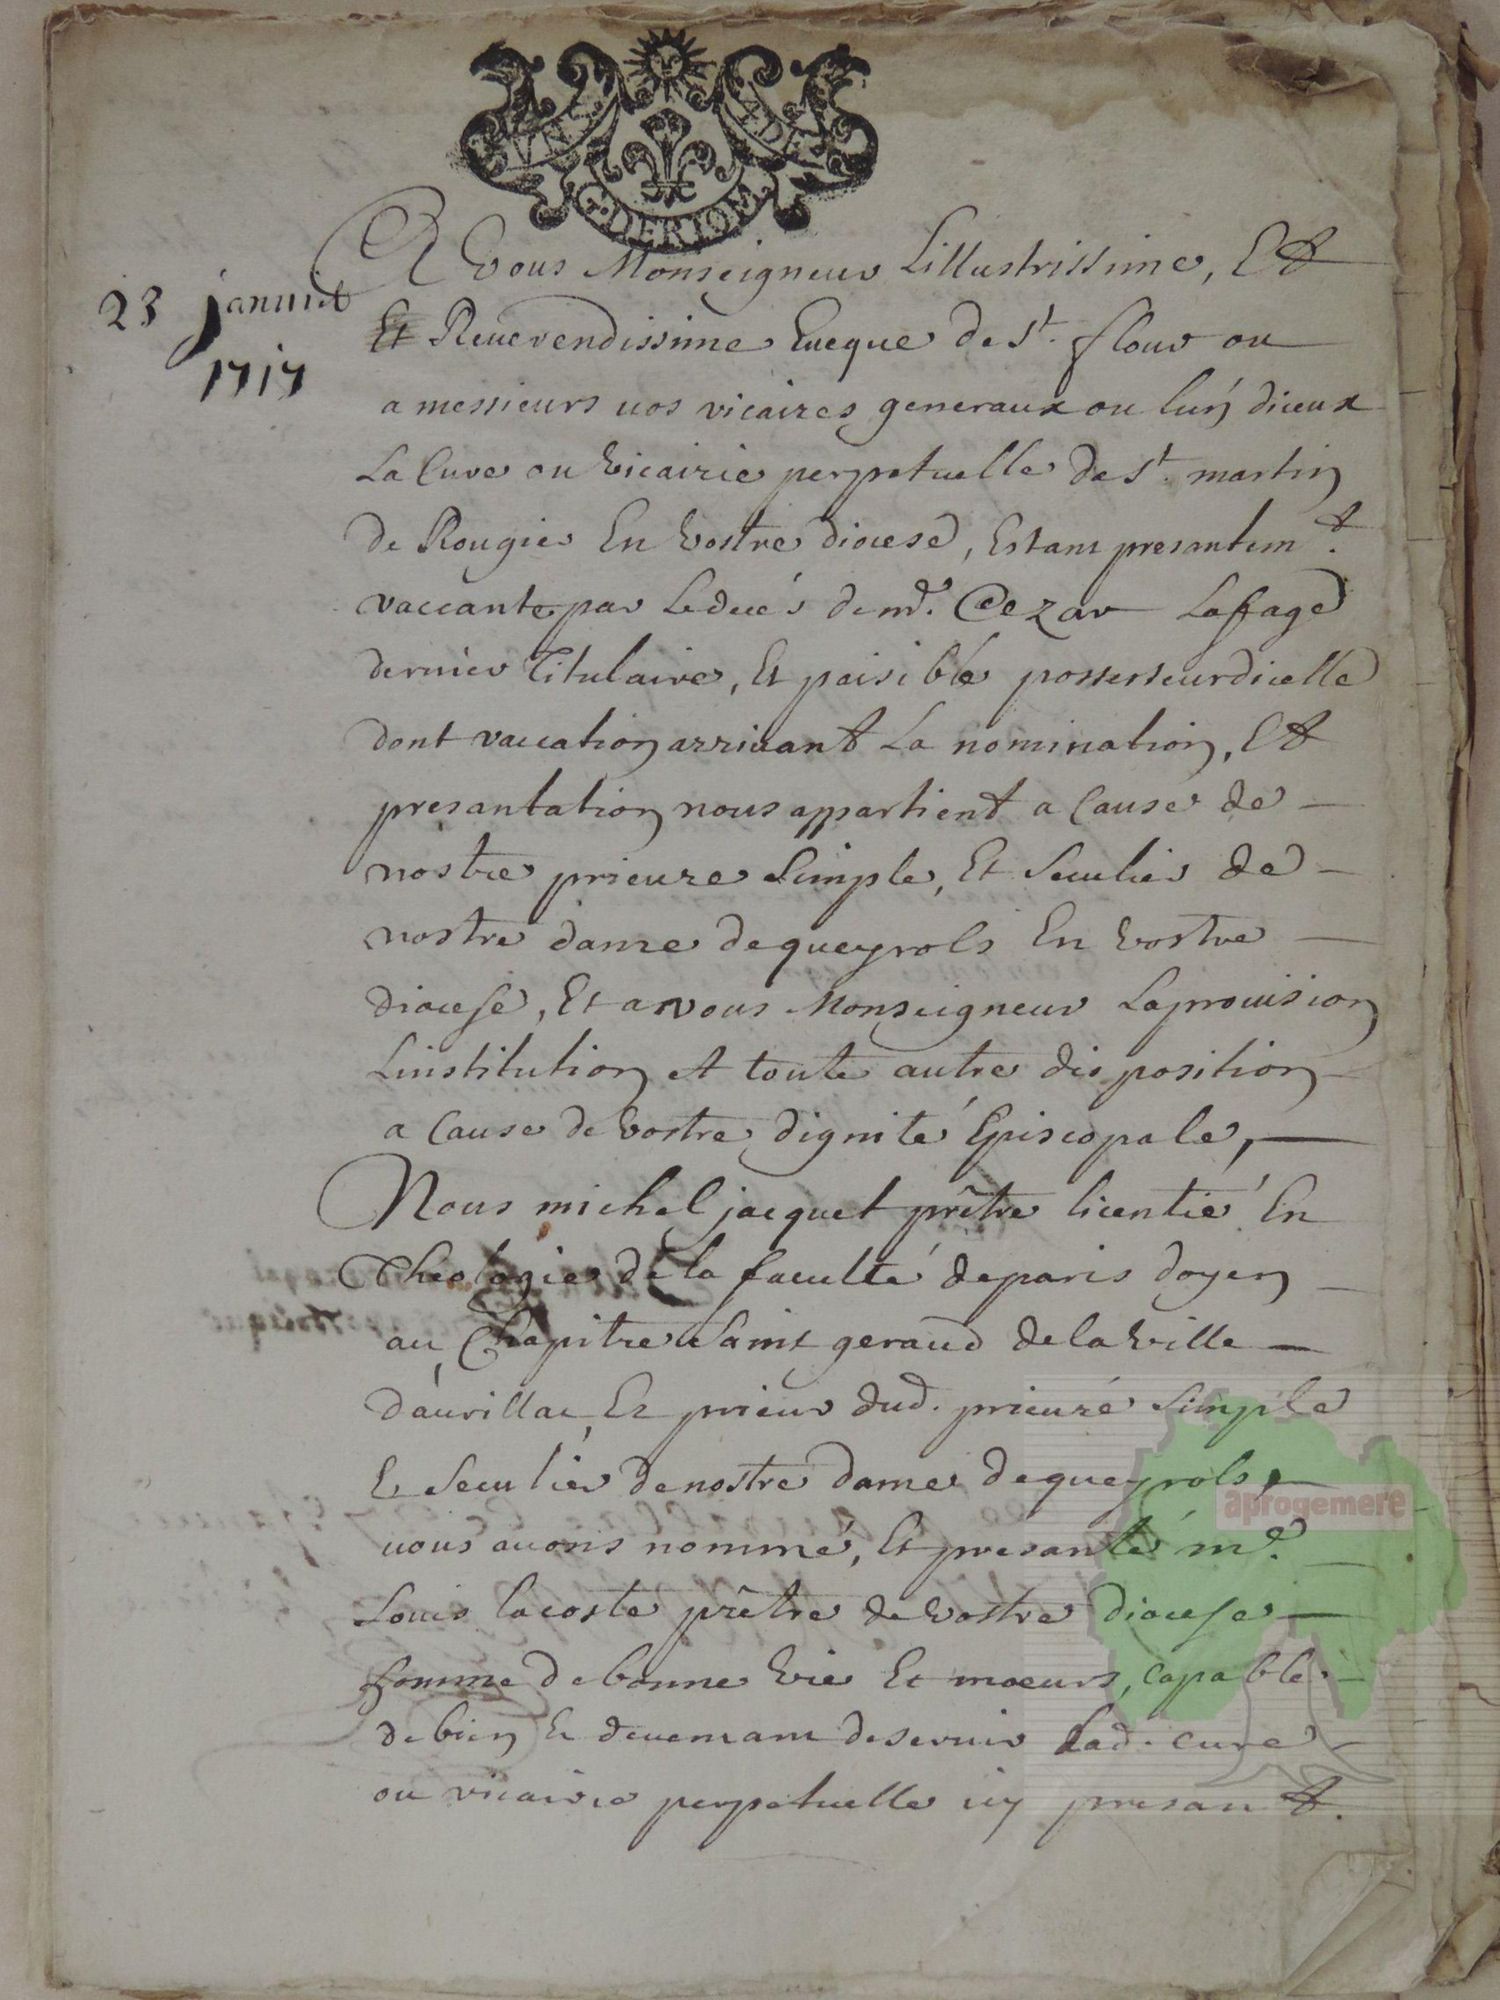 G. DERIOM
A vous Monseigneur Lillustrissime, Et
23 januier
Et Reuerendissime Eueque de St. flour ou
1717
a messieurs uos vicaires generaux ou lun diceux
La Cure ou Vicairie perpetuelle de St. martin
de Rougier En Vostre diocese, Estant presantemt.
vaccante par Le decés de mr. Cezar Lafage
dernier Titulaire, Et paisible possesseur dicelle
dont vaccation arriuant La nomination, Et
presantation nous appartient a Cause de
nostre prieure Simple, Et Seculier de
nostre dame de queyrols En Vostre
diocese, Et a vous Monseigneur La prouision
Linstitution et toute autre disposition
a Cause de Vostre dignité Episcopale,
Nous michel jacquet prêtre licentié En
Theologie de la faculté de paris doyen
au Chapitre Saint geraud de la Ville
d'aurillac Et prieur dud. prieuré Simple
Et Seculier de nostre dame de queyrols,
uous auons nommé, Et presanté me.
Louis lacoste prêtre de Vostre diocese
homme de bonne Vie Et moeurs, capable
de bien Et deuemant deseruir Lad. cure
ou vicairie perpetuelle icy presant.
aprogemere